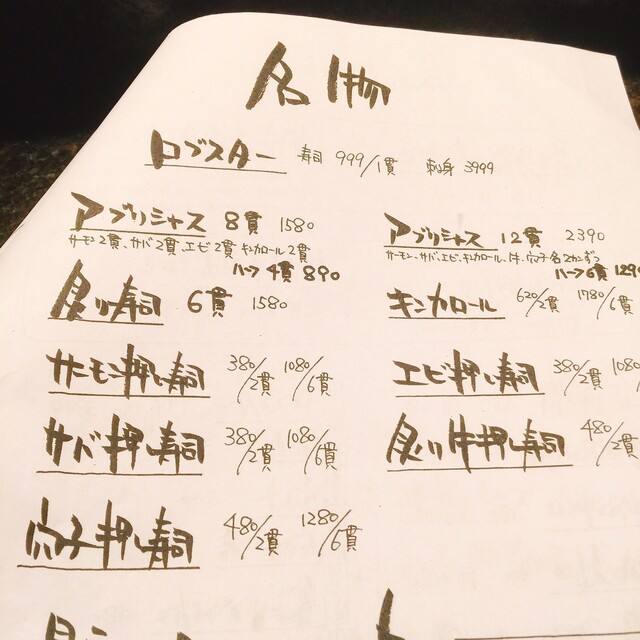 名物
ロブスター 寿司 999/1貫 刺身 3999
アブリシャス 8貫 1580
サーモン2貫、サバ2貫、エビ2貫、キンカロール2貫
ハーフ 4貫 890
炙り寿司 6貫 1580
サーモン押し寿司 380/2貫 1080/6貫
サバ押寿司 380/2貫 1080/6貫
穴子押し寿司 480/2貫 1280/6貫
アブリシャス 12貫 2390
サーモン、サバ、エビ、キンカロール、牛、穴子 各2カンずつ
ハーフ 6貫 1290
キンカロール 620/2貫 1780/6貫
エビ押し寿司 380/2貫 1080/
炙り牛押し寿司 480/2貫